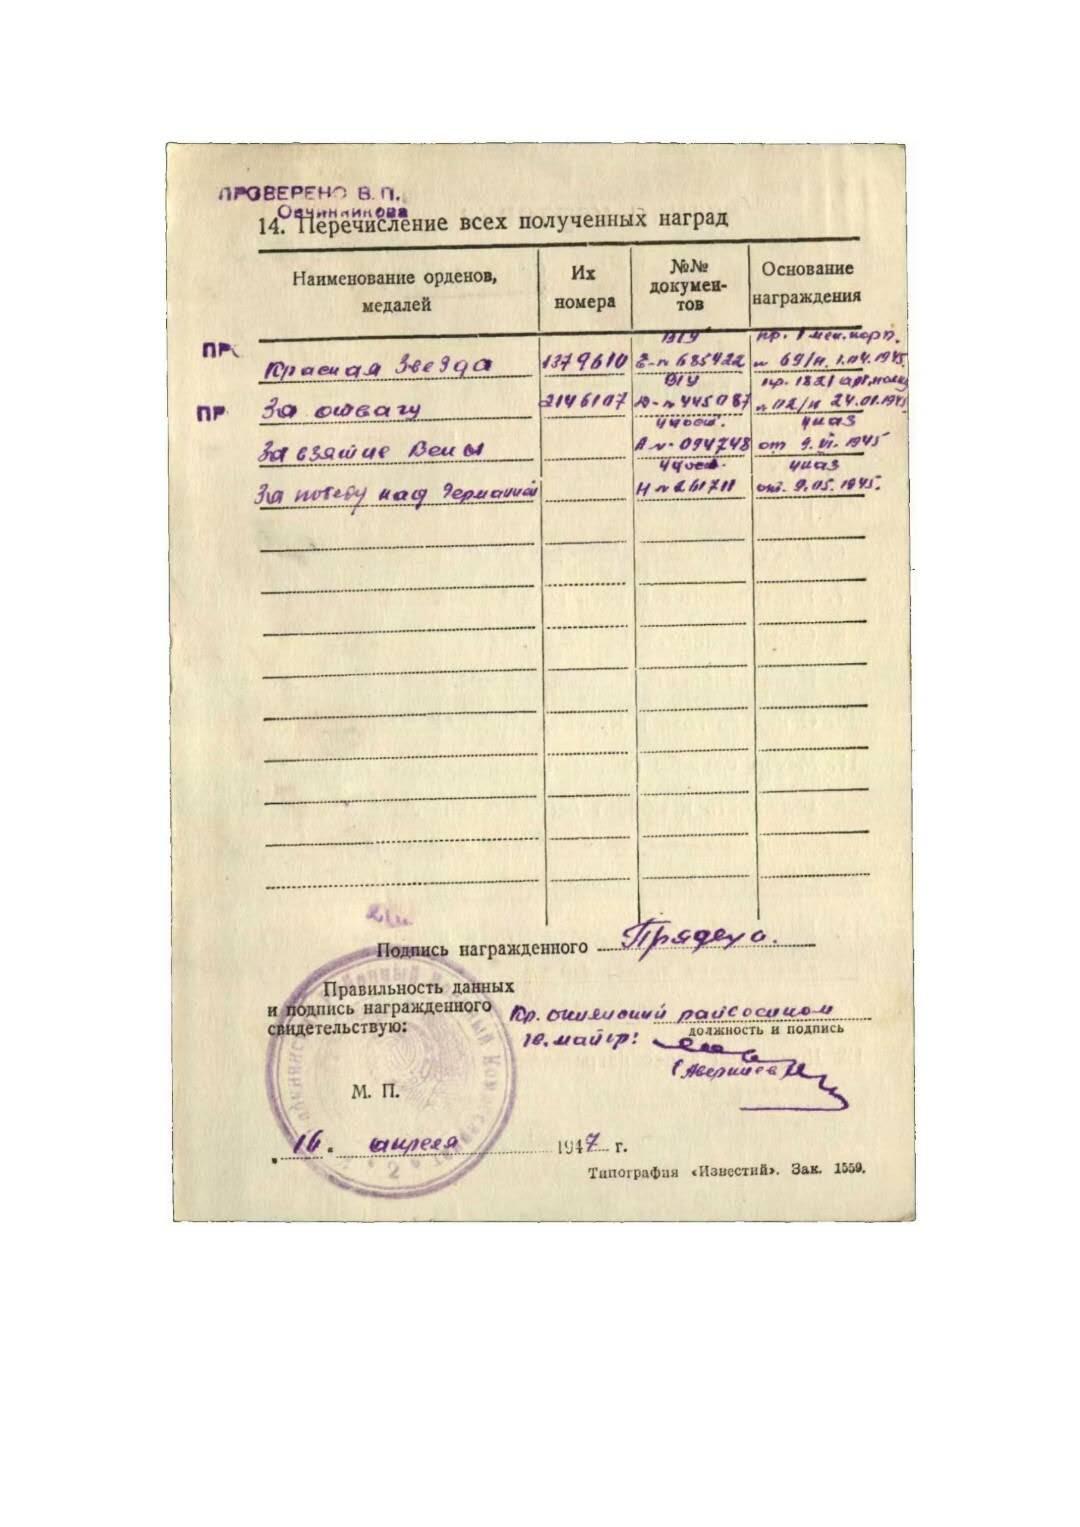 ПРОВЕРЕНО В. П.
Овчинникова
14. Перечисление всех полученных наград
Наименование орденов, медалей
Их номера
№№ докумен-тов
Основание награждения
ПР
Красная Звезда 1379610 ВГУ Е-№ 685422 пр. 1 мех.корп. № 69/н. 1.04.1945
ПР
За отвагу 2146107 ВГУ № 445087 пр. 1821 арт.полку № 02/н 24.01.1945
За взятие Вены удост. А № 094748 указ от 9.VI.1945
За победу над Германией удост. Н № 261711 указ от. 9.05.1945.
Подпись награжденного
Правильность данных
и подпись награжденного
свидетельствую:
райвоенком
должность и подпись
майор:
М. П.
2
„ 16 “ апреля 1947 г.
Типография «Известий». Зак. 1559.